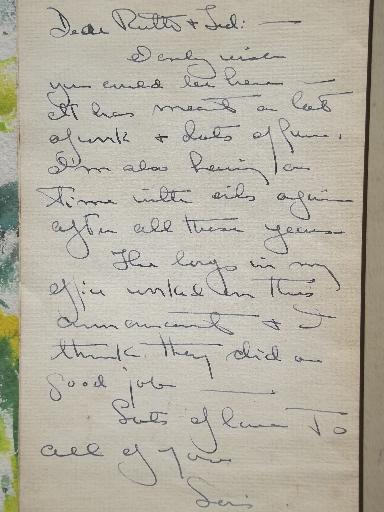 Dear Ruth & Ted: —
I only wish
you could be here —
It has meant a lot
of work & lots of fun.
I'm also having a
time with oils again
after all these years —
The boys in my
office worked on this
announcement & I
think they did a
good job —
Lots of love To
all of you